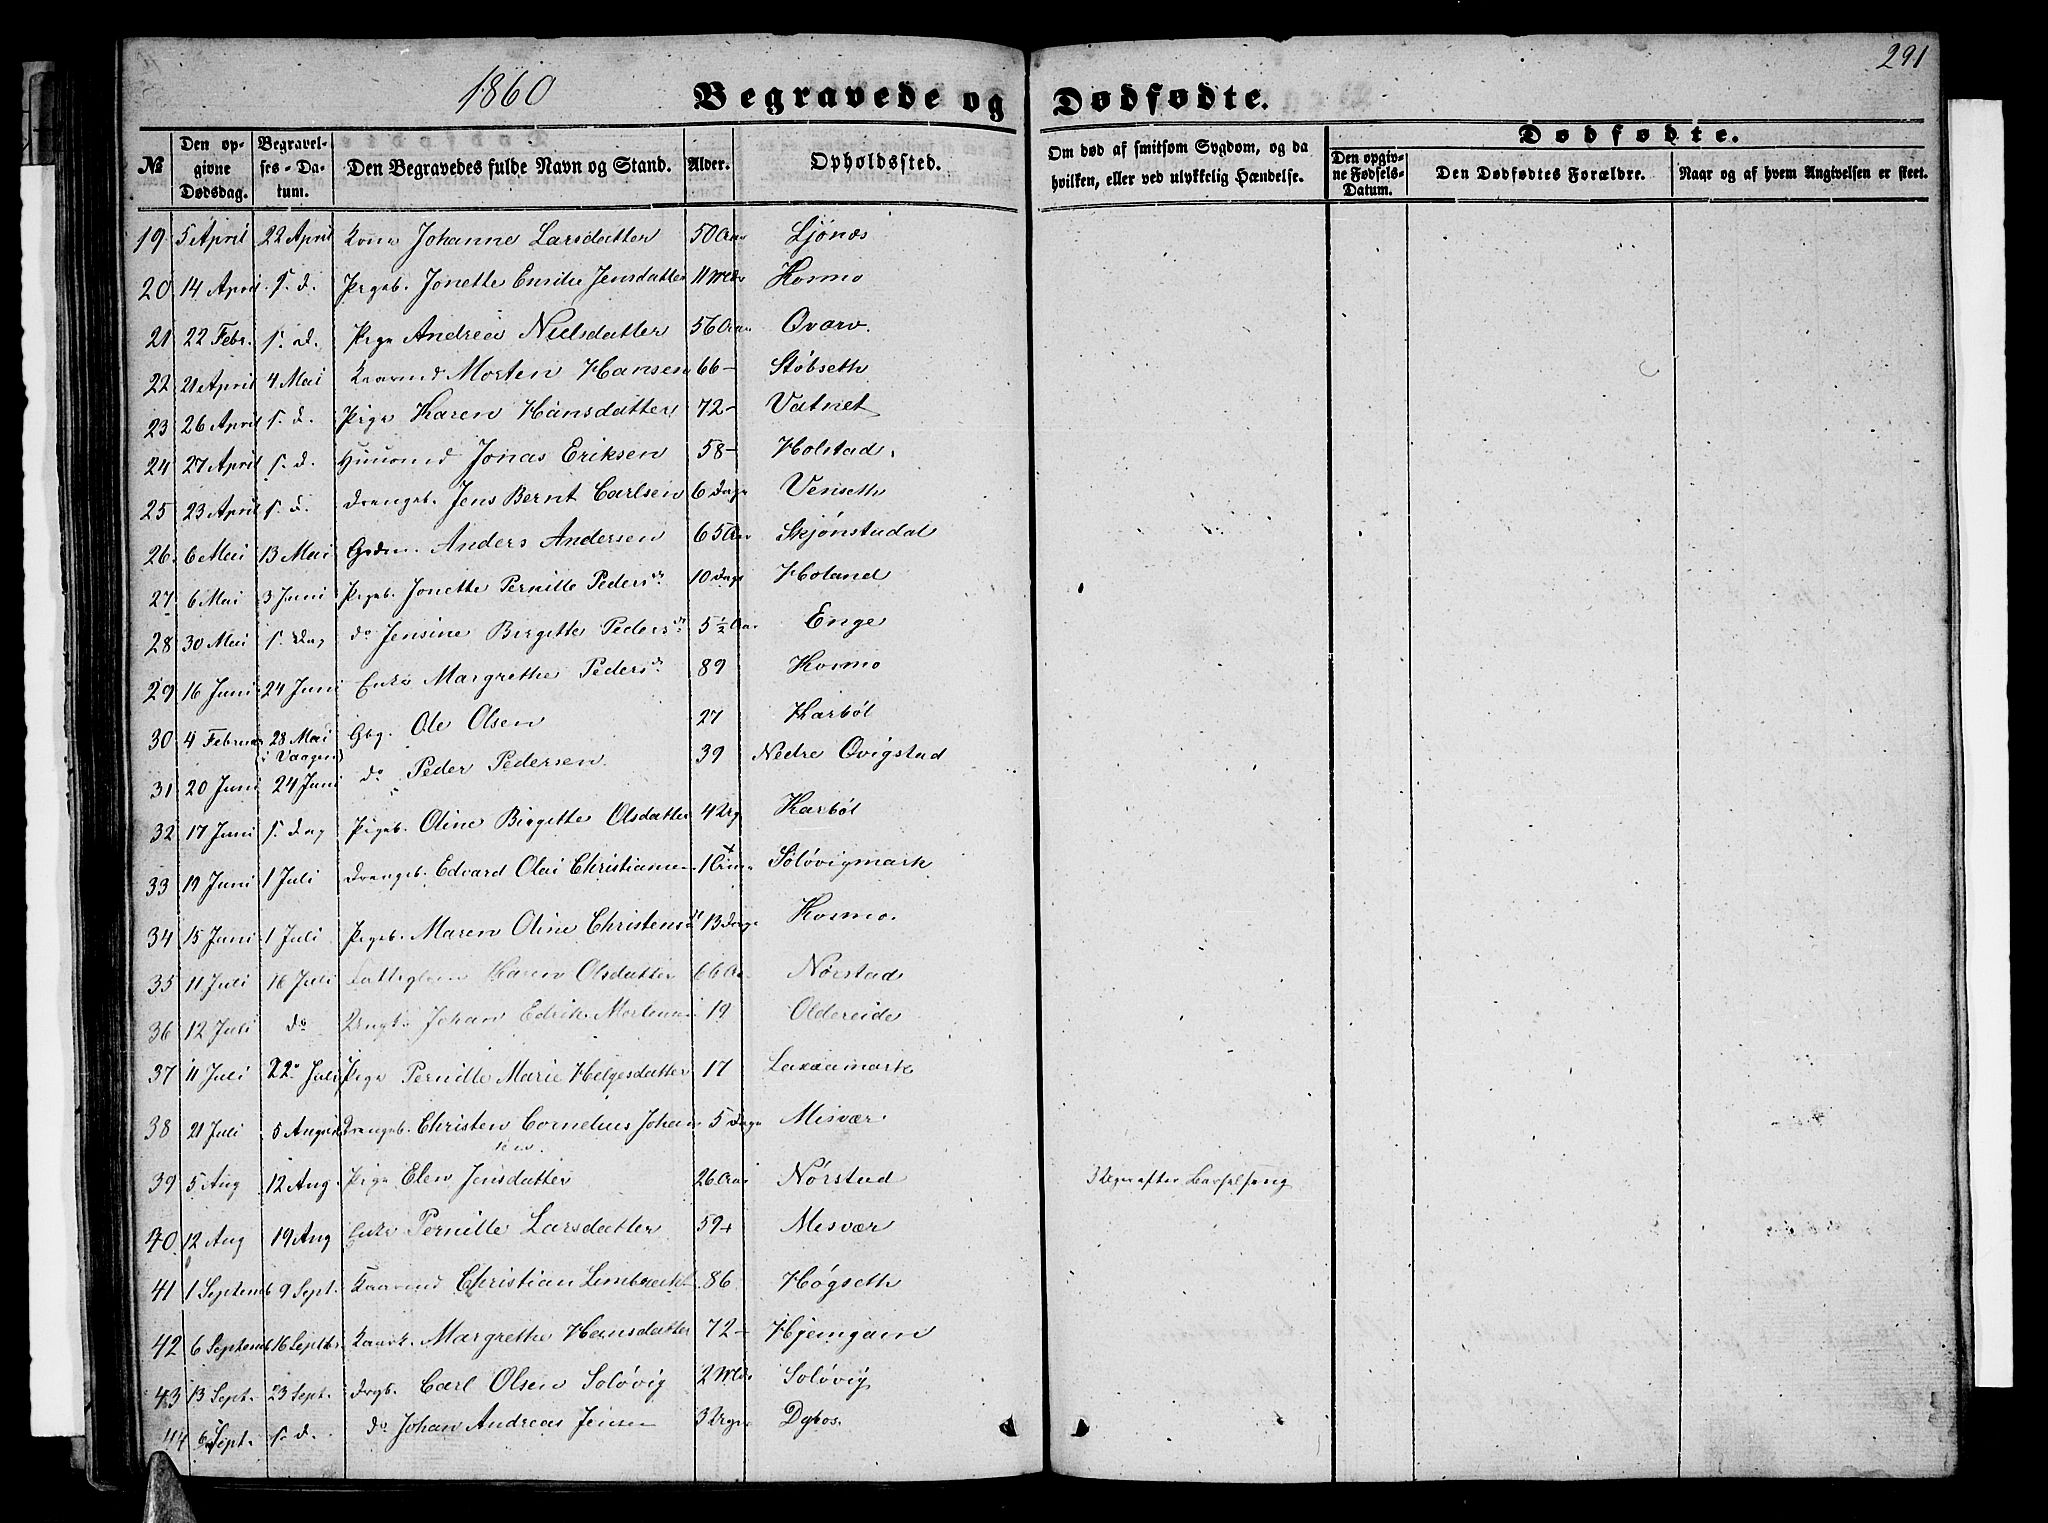 291
1860
Begravede og Dødfødte.
№
Den opgivne Dødsdag.
Begravelses-Datum.
Den Begravedes fulde Navn og Stand.
Alder.
Opholdssted.
Om død af smitsom Sygdom, og da hvilken, eller ved ulykkelig Hændelse.
Dødfødte.
Den opgivne Fødsels-Datum.
Den Dødfødtes Forældre.
Naar og af hvem Angivelsen er skeet.
19 5 April 22 April Kone Johanne Larsdatter 50 Aar Ljönes
20 14 April s. d. Pigeb. Jonette Emilie Jensdatter 11 Mdr Kosmo
21 22 Febr. s. d. Pige Andrea Nielsdatter 56 Aar Qvarv.
22 21 April 4 Mai Kaarmd Morten Hansen 66 - Stöbseth
23 26 April s. d. Pige Karen Hansdatter 72 - Vatnet
24 27 April s. d. Huusmd Jonas Eriksen 58 - Holstad
25 23 April s. d. Drengeb. Jens Bernt Carlsen 6 Dage Venseth
26. 6 Mai 13 Mai Gdm. Anders Andersen 65 Aar Skjönstadal
27 6 Mai 3 Juni Pigeb. Jonette Pernille Pedersdr 10 Dage Holand
28 30 Mai s. Dag do Jensine Birgitte Pedersdr 5 1/2 Aar Enge
29 16 Juni 24 Juni Enke Margrethe Pedersdr 89 Kosmo
30 4 Februar 28 Mai (i Vaagen) Gbg. Ole Olsen 27 Karböl
31 20 Juni 24 Juni do Peder Pedersen 39 Nedre Qvigstad
32 17 Juni s. Dag Pigeb. Oline Birgitte Olsdatter 4 Uge Karböl
33 19 Juni 1 Juli Drengeb. Edvard Olai Christiansen 1 Solövigmark
34 15 Juni 1 Juli Pigeb. Maren Oline Christensd 13 Dage Kosmo.
35 11 Juli 16 Juli Fattiglem Karen Olsdatter 66 Aar Nörstad
36 12 Juli do Johan Edrik 19 Oldereide
37 11 Juli 22 Juli Pige Pernille Marie Helgesdatter 17 Laxaamark
38 21 Juli 5 August Drengeb. Christen Cornelius Johan 5 Dage Misvær
sen.
39 5 Aug 12 Aug. Pige Elen Jensdatter 26 Aar Nörstad 3 Uger efter Barselseng
40 12 Aug 19 Aug Enke Pernille Larsdatter 59 Misvær
41 1 Septemb 9 Sept. Kaarmd Christian 86 Högseth
42 6 Septemb 16 Septbr. Kaark. Margrethe Hansdatter 72 - Hjemgam
43 13 Sept. 23 Sept. Drgb. Carl Olsen Solövig 2 Mdr Solövig
44 6 Sept. s. d. do Johan Andreas Jensen 3 Uger Dybos.